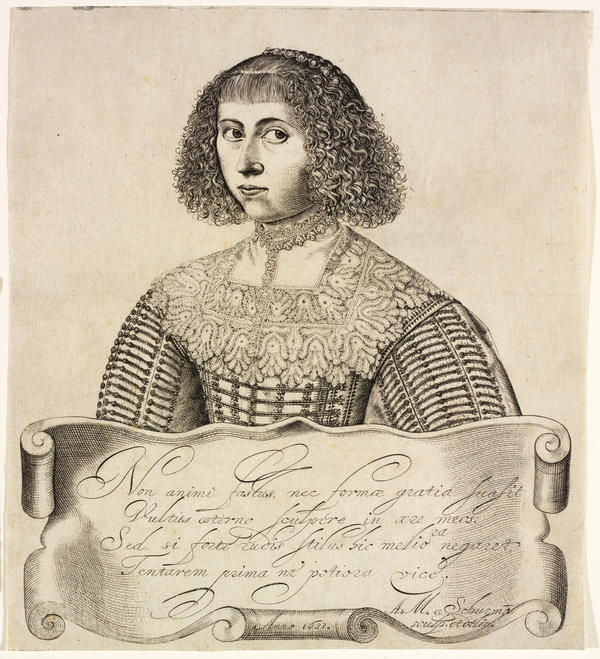 Non animi fastus, nec formæ gratia suasit
Vultus æterno sculpere in ære meos:
Sed, si forte rudis stilus hic meliora negaret,
Tentarem prima ne potiora vice.
A. M. a Schurman
sculps. et delin.
Anno 1633.